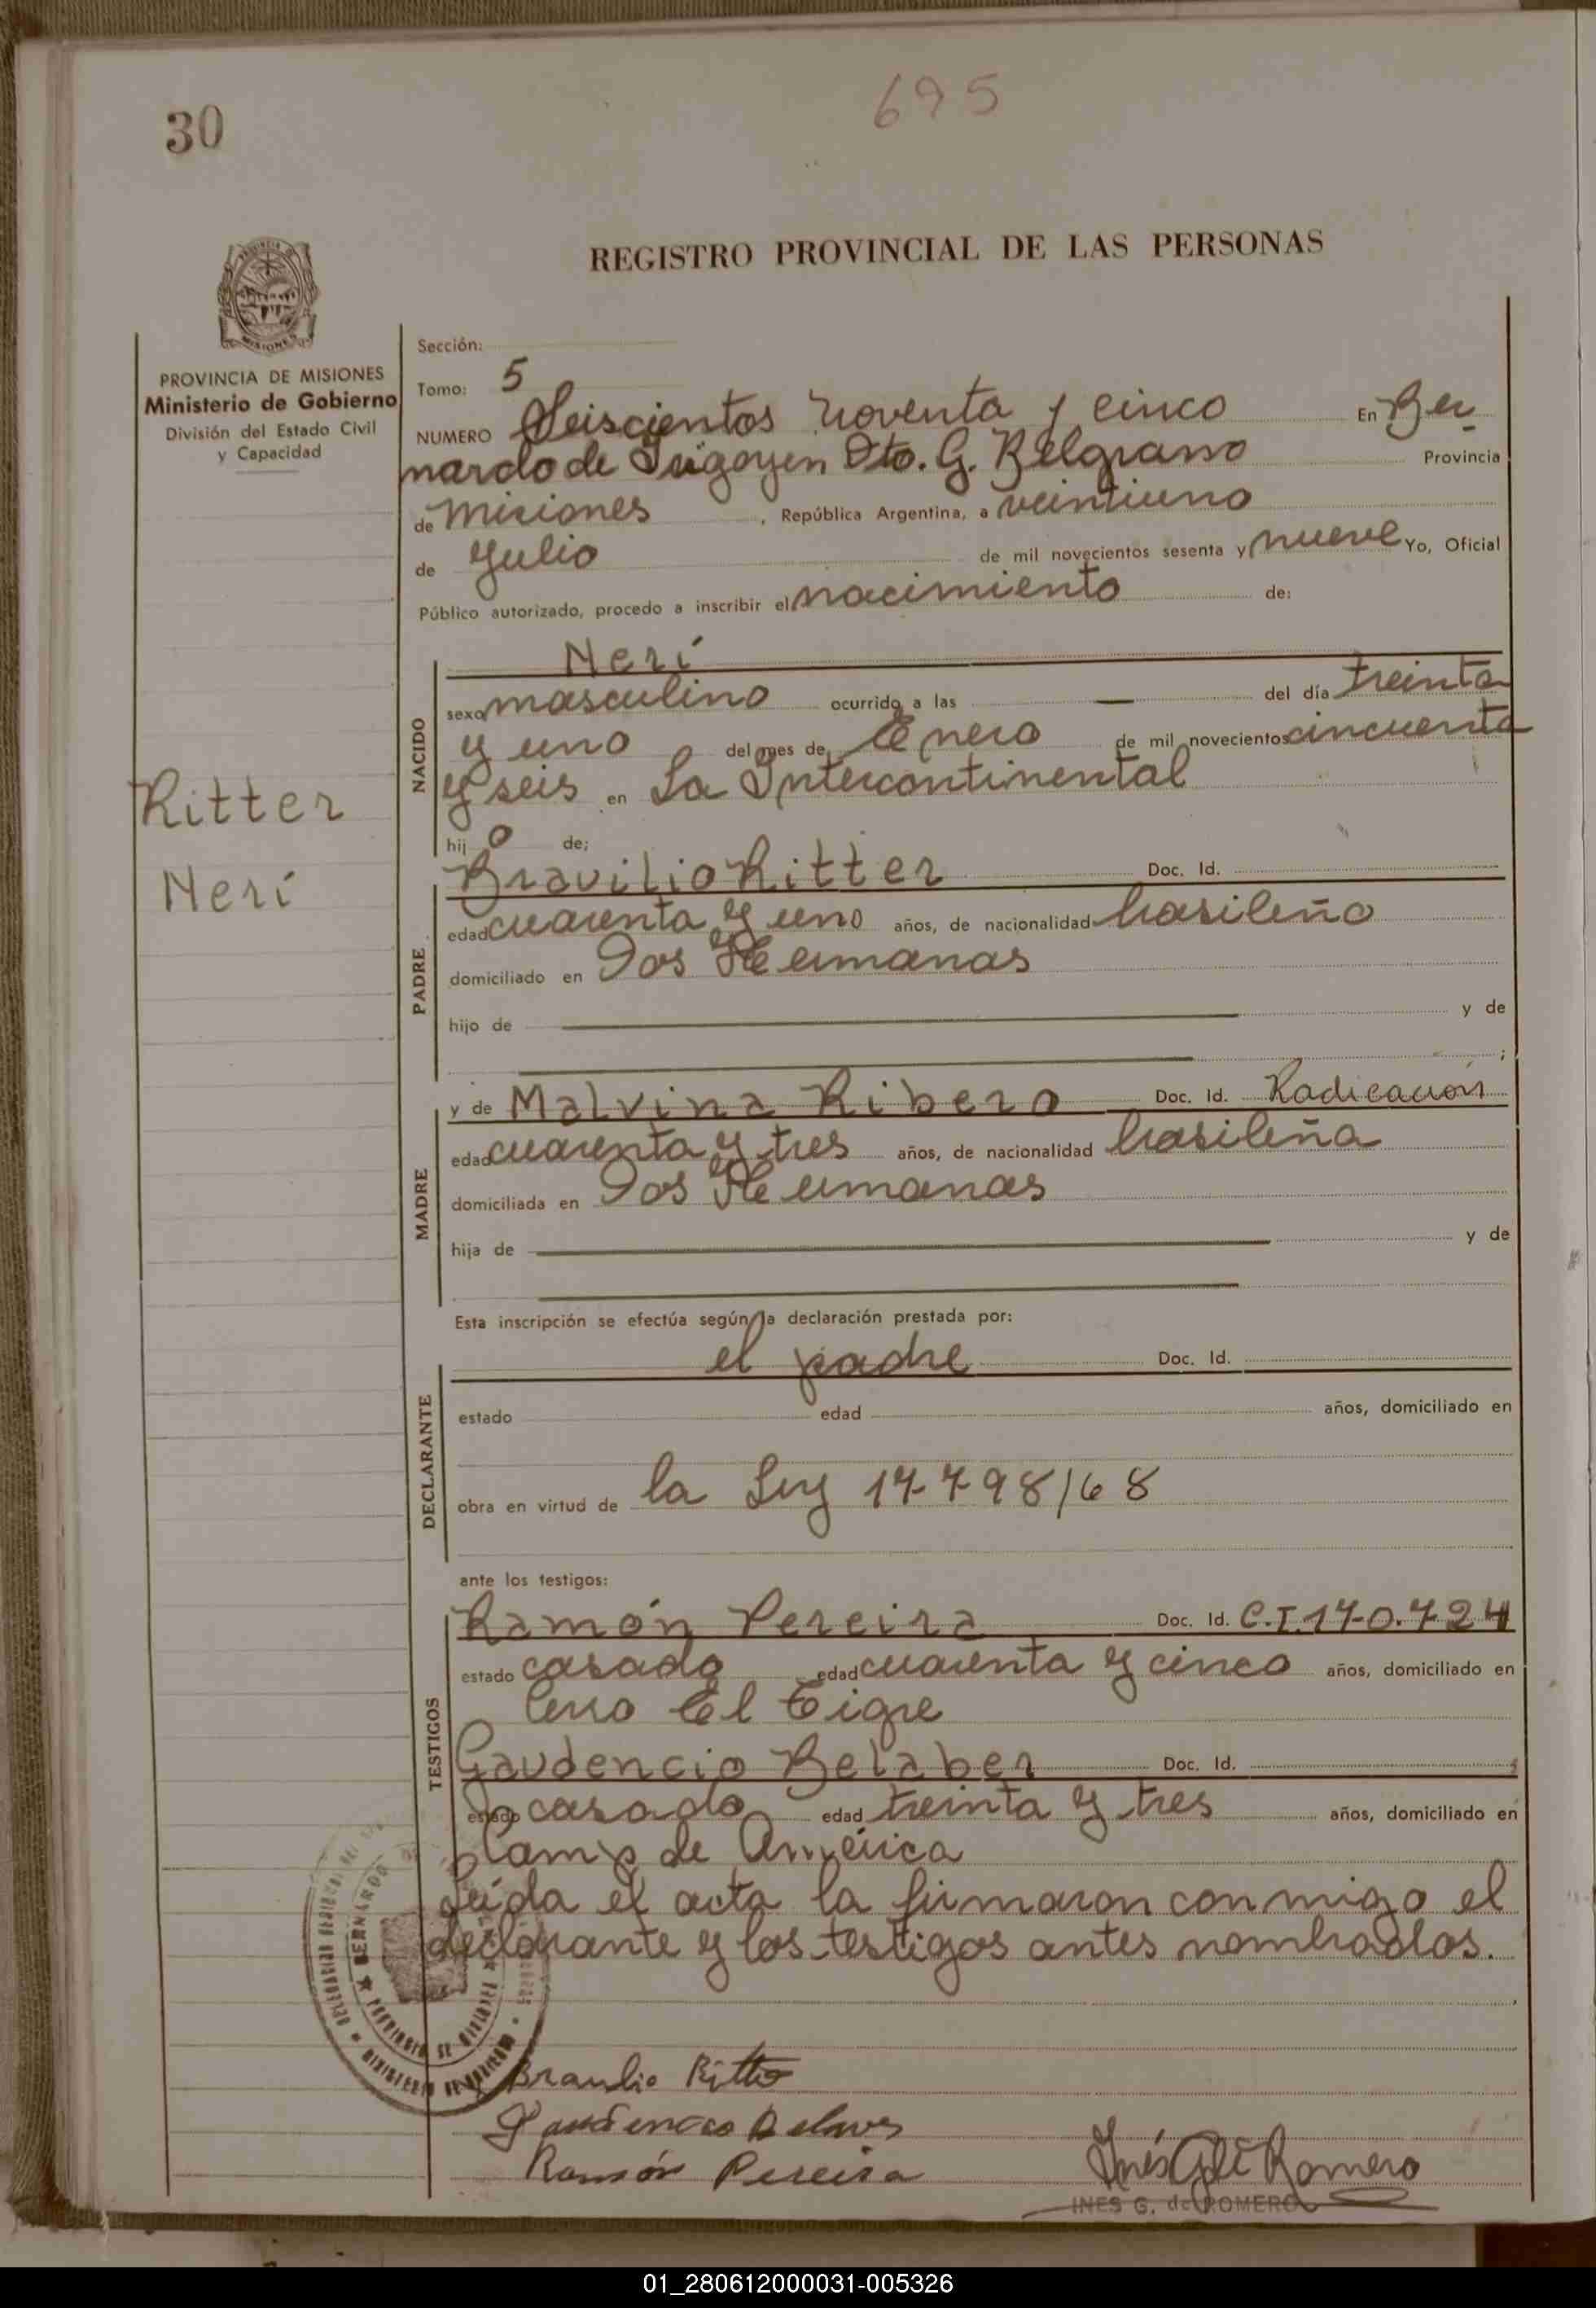 695
30
REGISTRO PROVINCIAL DE LAS PERSONAS
PROVINCIA DE MISIONES
Ministerio de Gobierno
División del Estado Civil
y Capacidad
Sección:
Tomo: 5
NUMERO Seiscientos noventa y cinco En Ber
nardo de Irigoyen Dto. G. Belgrano Provincia
de Misiones, República Argentina, a veintiuno
de Julio de mil novecientos sesenta y nueve Yo, Oficial
Público autorizado, procedo a inscribir el nacimiento de:
NACIDO
Nerí
sexo masculino ocurrido a las — del día treinta
y uno del mes de Enero de mil novecientos cincuenta
y seis en La Intercontinental
hijo de;
Ritter
Nerí
PADRE
Bravilio Ritter Doc. Id.
edad cuarenta y uno años, de nacionalidad brasileño
domiciliado en Dos Hermanas
hijo de y de
;
MADRE
y de Malvina Ribero Doc. Id. Radicación
edad cuarenta y tres años, de nacionalidad brasileña
domiciliada en Dos Hermanas
hija de y de
Esta inscripción se efectúa según la declaración prestada por:
DECLARANTE
el padre Doc. Id.
estado edad años, domiciliado en
obra en virtud de la Ley 17798/68
ante los testigos:
TESTIGOS
Ramón Pereira Doc. Id. C.I.170.724
estado casado edad cuarenta y cinco años, domiciliado en
Cerro El Tigre
Gaudencio Belaber Doc. Id.
estado casado edad treinta y tres años, domiciliado en
de América
Leída el acta la firmaron conmigo el
declarante y los testigos antes nombrados.
BERNARDO
Braulio Ritter
Ramón Pereira
Inés G. de Romero
INES G. de ROMERO
01_280612000031-005326